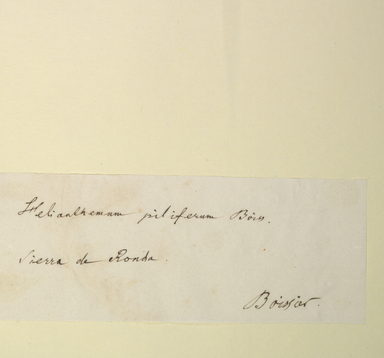 Helianthemum piliferum Boiss.
Sierra de Ronda.
Boissier.